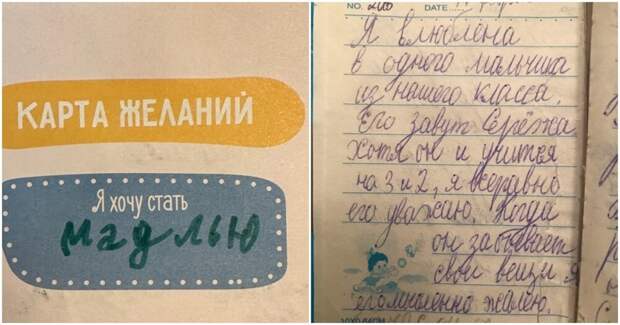 КАРТА ЖЕЛАНИЙ
Я хочу стать
мадлью
NO.
DATE
Я влюблена
в одного мальчика
из нашего класса.
Его завут Серёжа
Хотя он и учится
на 3 и 2, я всеравно
его уважаю. Когда
он забывает
свои вещи я
его мысленно жалею.